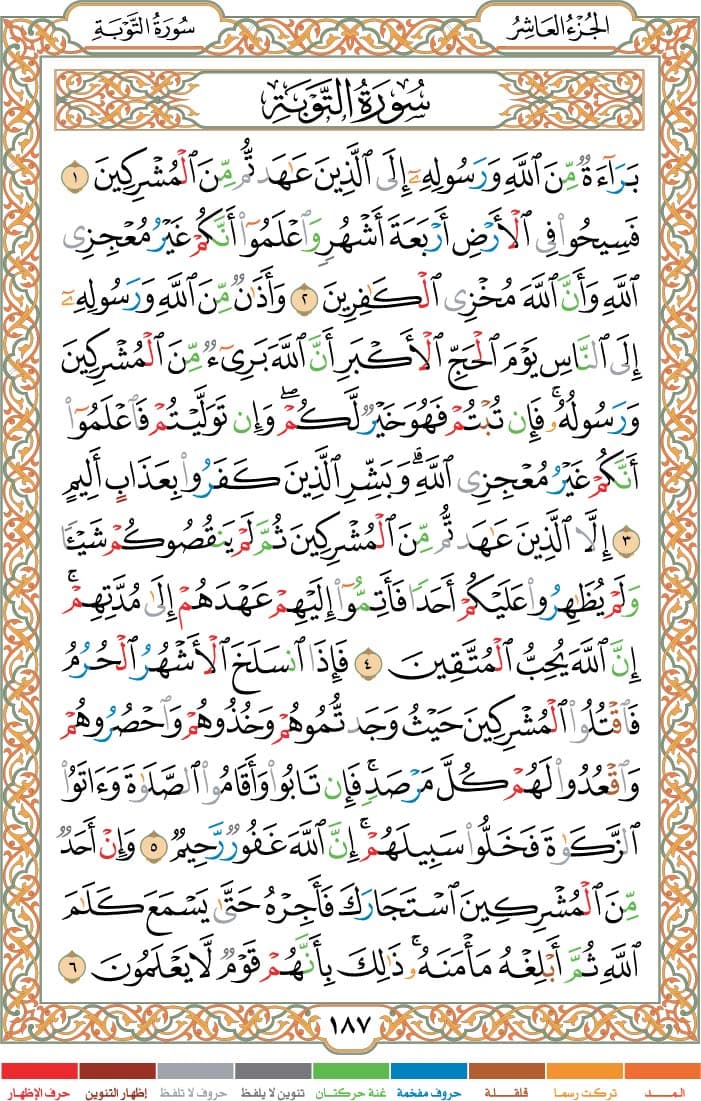 الجُزْءُ العَاشِرُ
سُورَةُ التَّوْبَةِ
سُورَةُ التَّوْبَةِ
بَرَآءَةٌ مِّنَ ٱللَّهِ وَرَسُولِهِۦٓ إِلَى ٱلَّذِينَ عَٰهَدتُّم مِّنَ ٱلْمُشْرِكِينَ ١
فَسِيحُوا۟ فِى ٱلْأَرْضِ أَرْبَعَةَ أَشْهُرٍ وَٱعْلَمُوٓا۟ أَنَّكُمْ غَيْرُ مُعْجِزِى
ٱللَّهِ وَأَنَّ ٱللَّهَ مُخْزِى ٱلْكَٰفِرِينَ ٢ وَأَذَٰنٌ مِّنَ ٱللَّهِ وَرَسُولِهِۦٓ
إِلَى ٱلنَّاسِ يَوْمَ ٱلْحَجِّ ٱلْأَكْبَرِ أَنَّ ٱللَّهَ بَرِىٓءٌ مِّنَ ٱلْمُشْرِكِينَ
وَرَسُولُهُۥ ۚ فَإِن تُبْتُمْ فَهُوَ خَيْرٌ لَّكُمْ ۖ وَإِن تَوَلَّيْتُمْ فَٱعْلَمُوٓا۟
أَنَّكُمْ غَيْرُ مُعْجِزِى ٱللَّهِ ۗ وَبَشِّرِ ٱلَّذِينَ كَفَرُوا۟ بِعَذَابٍ أَلِيمٍ
٣ إِلَّا ٱلَّذِينَ عَٰهَدتُّم مِّنَ ٱلْمُشْرِكِينَ ثُمَّ لَمْ يَنقُصُوكُمْ شَيْـًٔا
وَلَمْ يُظَٰهِرُوا۟ عَلَيْكُمْ أَحَدًا فَأَتِمُّوٓا۟ إِلَيْهِمْ عَهْدَهُمْ إِلَىٰ مُدَّتِهِمْ ۚ
إِنَّ ٱللَّهَ يُحِبُّ ٱلْمُتَّقِينَ ٤ فَإِذَا ٱنسَلَخَ ٱلْأَشْهُرُ ٱلْحُرُمُ
فَٱقْتُلُوا۟ ٱلْمُشْرِكِينَ حَيْثُ وَجَدتُّمُوهُمْ وَخُذُوهُمْ وَٱحْصُرُوهُمْ
وَٱقْعُدُوا۟ لَهُمْ كُلَّ مَرْصَدٍ ۚ فَإِن تَابُوا۟ وَأَقَامُوا۟ ٱلصَّلَوٰةَ وَءَاتَوُا۟
ٱلزَّكَوٰةَ فَخَلُّوا۟ سَبِيلَهُمْ ۚ إِنَّ ٱللَّهَ غَفُورٌ رَّحِيمٌ ٥ وَإِنْ أَحَدٌ
مِّنَ ٱلْمُشْرِكِينَ ٱسْتَجَارَكَ فَأَجِرْهُ حَتَّىٰ يَسْمَعَ كَلَٰمَ
ٱللَّهِ ثُمَّ أَبْلِغْهُ مَأْمَنَهُۥ ۚ ذَٰلِكَ بِأَنَّهُمْ قَوْمٌ لَّا يَعْلَمُونَ ٦
١٨٧
المـــد تركت رسما قلقـــلة حروف مفخمة غنة حركتان تنوين لا يلفظ حروف لا تلفظ إظهار التنوين حرف الإظهار